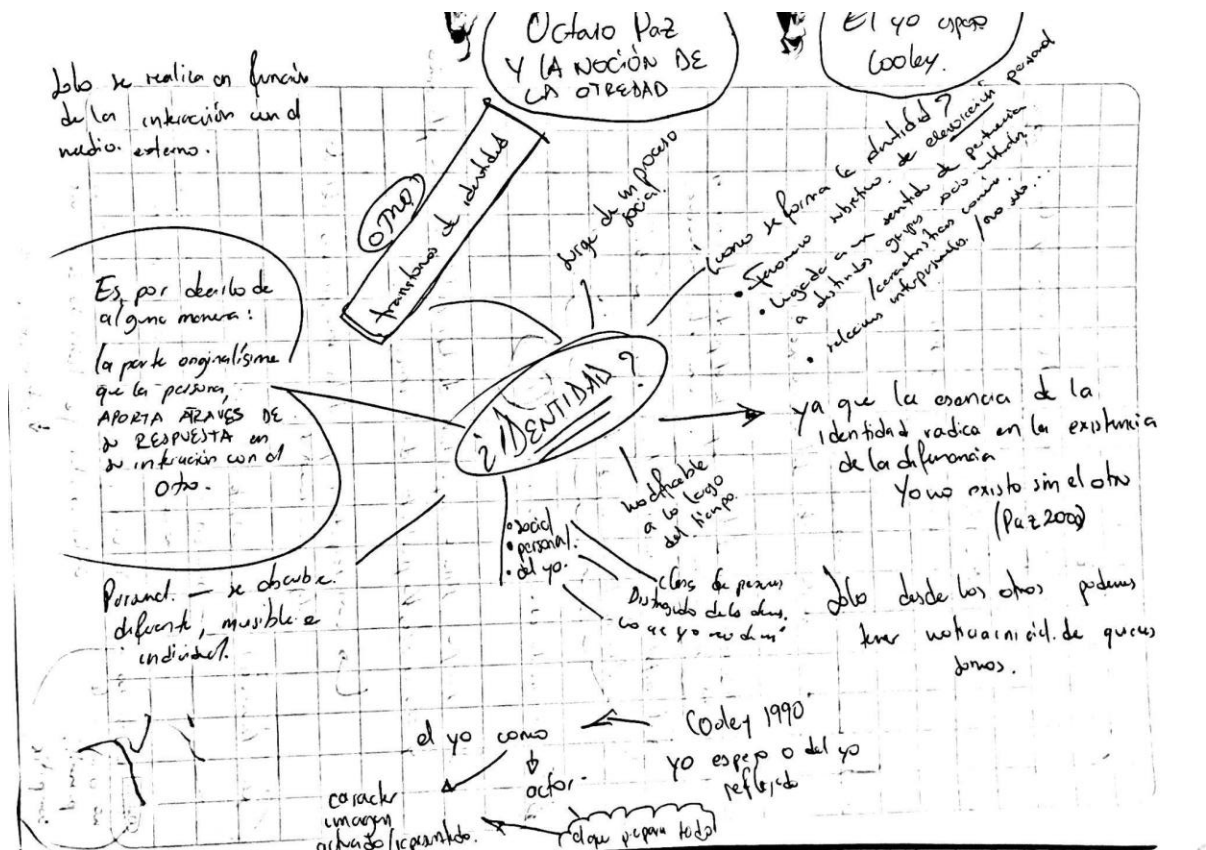 Octavio Paz
Y LA NOCIÓN DE
LA OTREDAD
El yo espejo
Cooley.
Solo se realiza en función
de la interacción con el
medio externo.
OTRO?
transtornos de identidad
Surge de un proceso
social
¿como se forma la identidad?
• fenómeno subjetivo de elaboración personal
• Ligada a un sentido de pertenencia
a distintos grupos socio culturales
/características común.
• relaciones interpersonales
Es por decirlo de
alguna manera:
la parte originalísima
que la persona,
APORTA ATRAVES DE
su RESPUESTA en
su interación con el
Otro.
¿IDENTIDAD?
ya que la esencia de la
identidad radica en la existencia
de la diferencia
Yo no existo sin el otro
(Paz 2000)
modificable
a lo largo
del tiempo.
• social
• personal.
• del yo.
Distinguido de los demás.
Personal. — se describe.
diferente, invisible e
individual.
Solo desde los otros podemos
tener noticia inicial de quienes
somos.
Cooley 1990
yo espejo o del yo
reflejado
el yo como
actor.
caracter
imagen
actuado/representado.
el que prepara todo